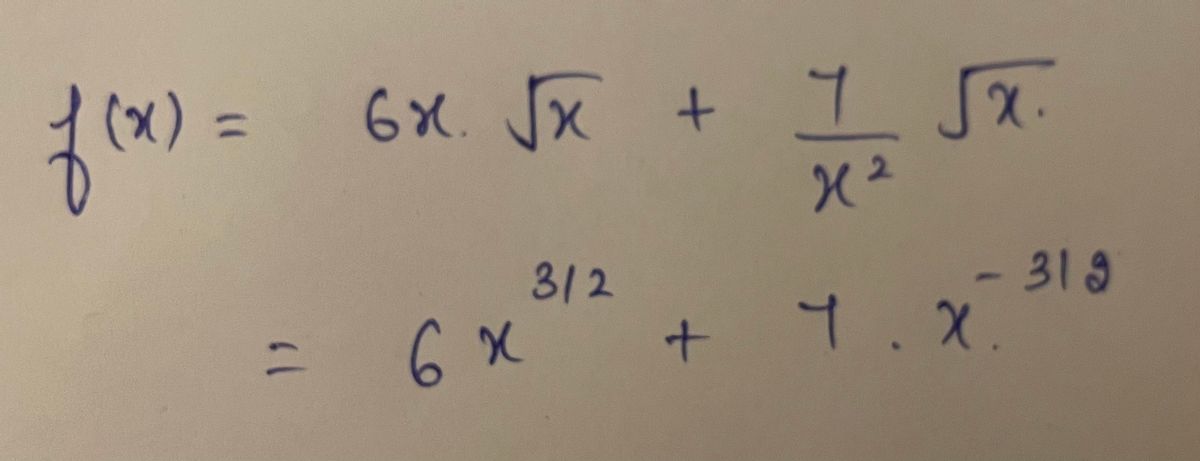 f(x) = 6x. √x + 7/x² √x.
= 6x^3/2 + 7 . x.^-3/2